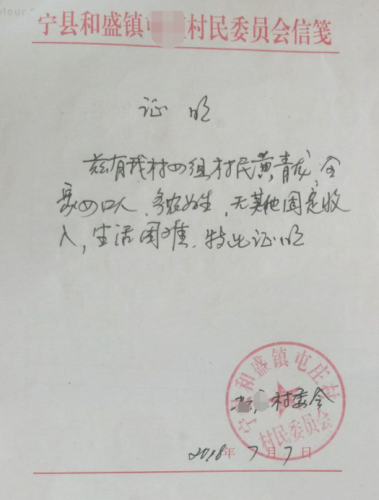 宁县和盛镇 村民委员会信笺
证明
兹有我村四组村民黄青龙 全
家四口人,务农为生,无其他固定收
入,生活困难,特出证明
宁县和盛镇屯庄村
村民委员会
村委会
2018年7月7日